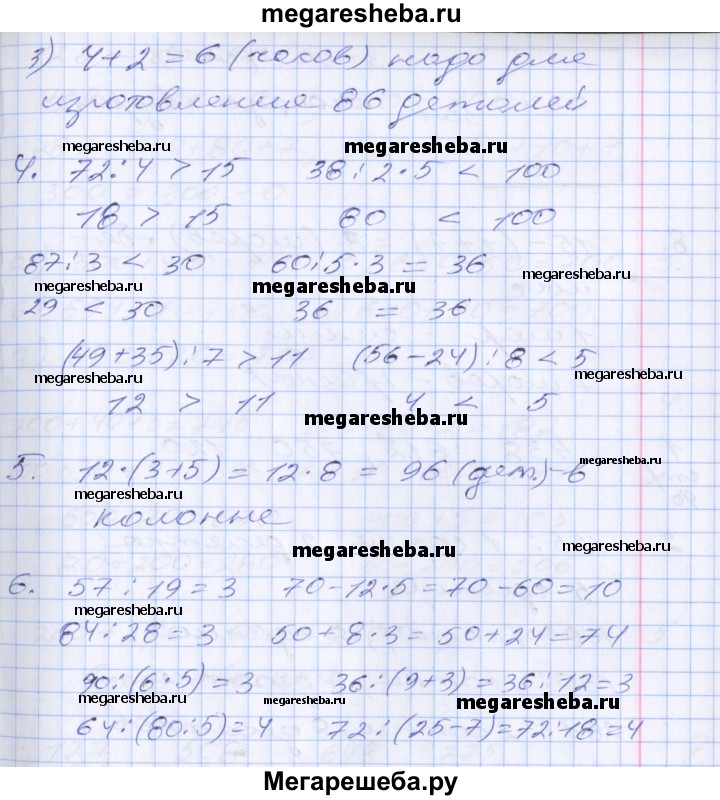 megaresheba.ru
3) 4+2=6 (часов) надо для
изготовления 86 деталей
megaresheba.ru megaresheba.ru
4. 72:4 > 15 38:2·5 < 100
18 > 15 80 < 100
87:3 < 30 60:5·3 = 36
megaresheba.ru megaresheba.ru
29 < 30 36 = 36
(49+35):7 > 11 (56-24):8 < 5
megaresheba.ru megaresheba.ru
12 > 11 4 < 5
megaresheba.ru
megaresheba.ru
5. 12·(3+5) = 12·8 = 96 (дет.)-в
megaresheba.ru
колонне
megaresheba.ru megaresheba.ru
6. 57:19=3 70-12·5=70-60=10
megaresheba.ru
84:28=3 50+8·3=50+24=74
90:(6·5)=3 36:(9+3)=36:12=3
megaresheba.ru megaresheba.ru megaresheba.ru
64:(80:5)=4 72:(25-7)=72:18=4
Мегарешеба.ру